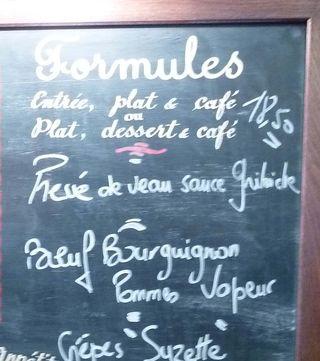 Formules
Entrée, plat & café
ou
Plat, dessert & café
18,50
Pressé de veau sauce Gribiche
Bœuf Bourguignon
Pommes Vapeur
Crêpes "Suzette"